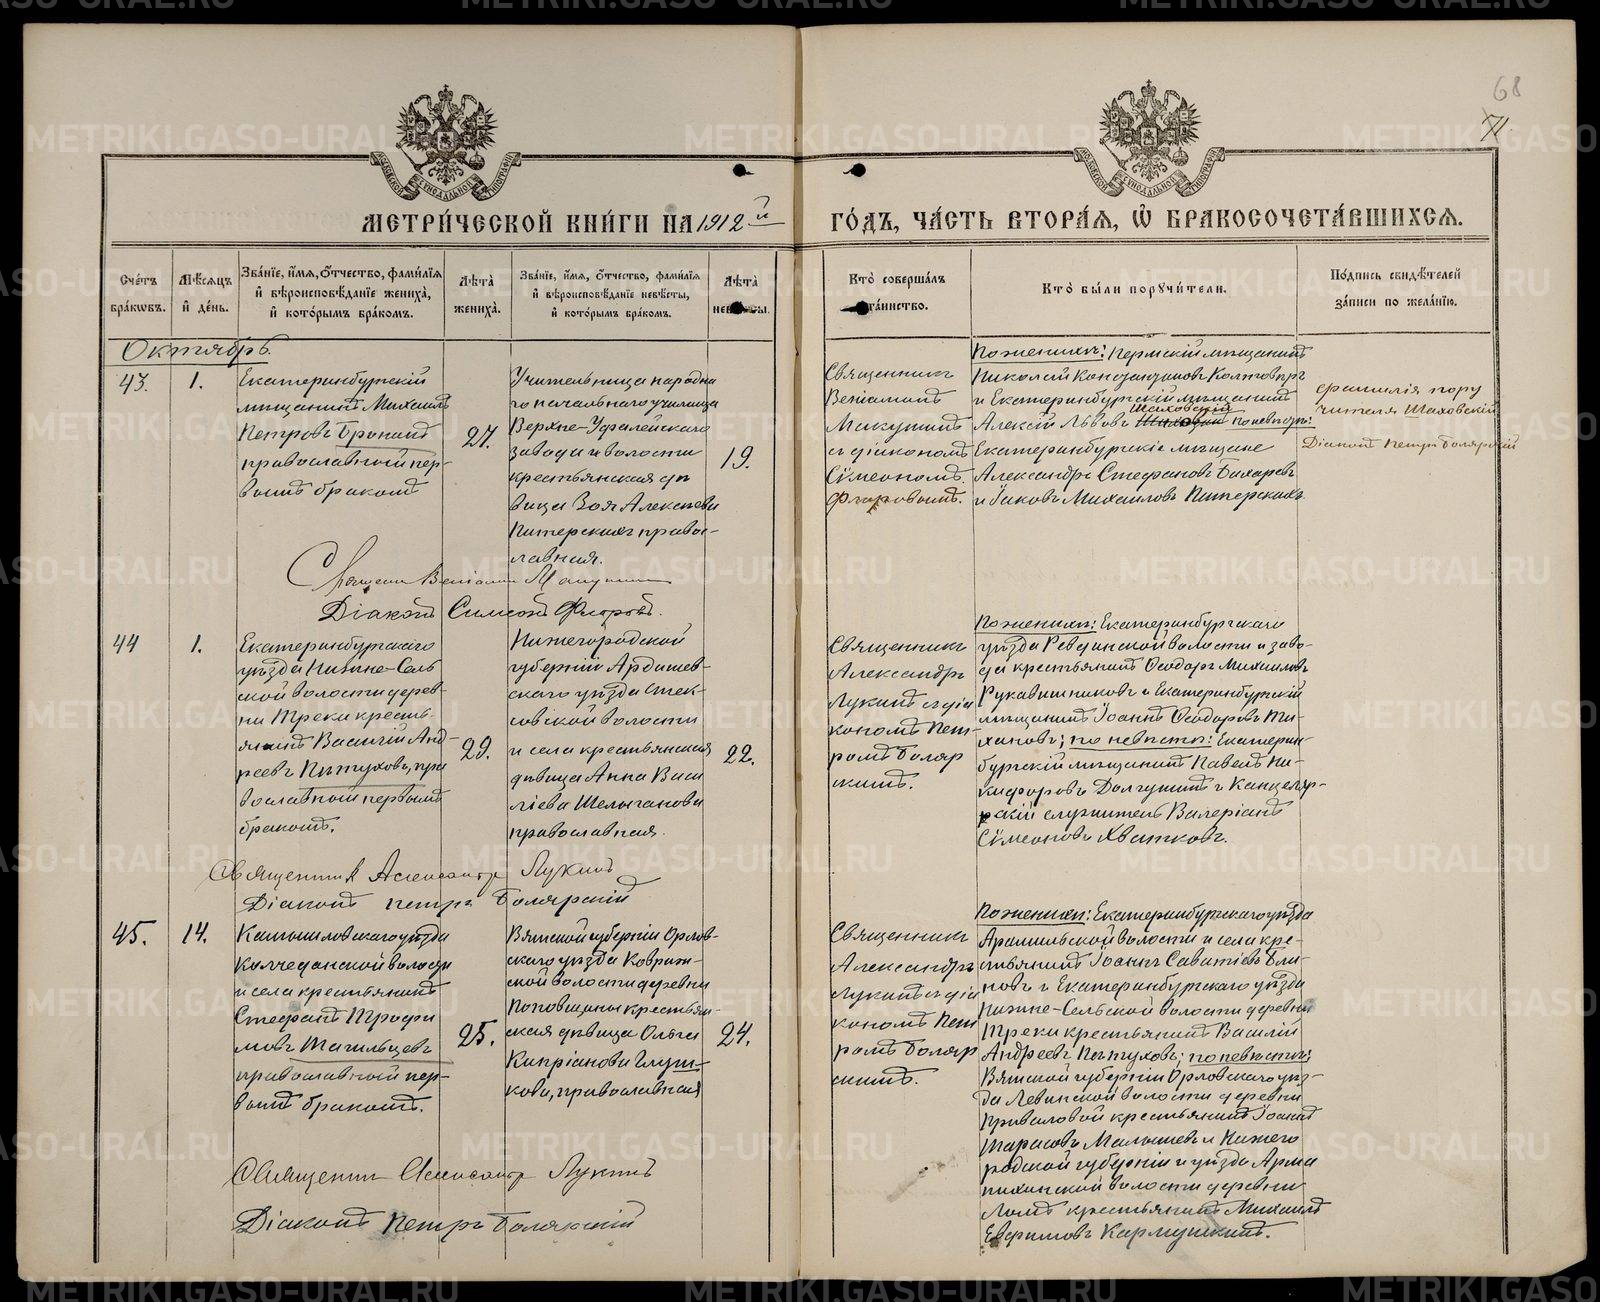 68
71
МЕТРИ́ЧЕСКОЙ КНИ́ГИ НА 1912й ГО́ДЪ, ЧА́СТЬ ВТОРА́Я, Ѿ БРАКОСОЧЕТА́ВШИХСЯ.
Сче́тъ бра́кѡвъ.
Мѣ́сяцъ и҆ де́нь.
Зва́нїе, и҆́мя, ѻ҆́тчество, фами́лїя
и҆ вѣроисповѣ́данїе жениха̀,
и҆ кото́рымъ бра́комъ.
Лѣ́та жениха̀.
Зва́нїе, и҆́мя, ѻ҆́тчество, фами́лїя
и҆ вѣроисповѣ́данїе невѣ́сты,
и҆ кото́рымъ бра́комъ.
Лѣ́та невѣ́сты.
Кто̀ соверша́лъ
та́инство.
Кто̀ бы́ли порꙋчи́тели.
По́дпись свидѣ́телей
за́писи по жела́нїю.
Октябрь.
43.
1.
Екатеринбургскій
мѣщанинъ Михаилъ
Петровъ Бронинъ
православный пер-
вымъ бракомъ
27.
Учительница народна
го начальнаго училища
Верхне-Уфалейскаго
завода и волости
крестьянская дѣ
вица Зоя Алексѣева
Питерскихъ правос-
лавная.
19.
Священникъ
Веніаминъ
Макушинъ
съ діакономъ
Сѵмеономъ
Флоровымъ.
По женихѣ: Пермскій мѣщанинъ
Николай
и Екатеринбургскій мѣщанинъ
Шаховскій
Алексій Львовъ по невѣстѣ:
Екатеринбургскіе мѣщане
Александръ Стефановъ Бахаревъ
и Іаковъ Михаиловъ Питерскихъ
фамилія пору
чителя Шаховскій
Діаконъ Петръ Болярскій
Священн Веніаминъ Макушинъ
Діаконъ Симеонъ Флоровъ.
44
1.
Екатеринбургскаго
уѣзда Нижне-Сель
ской волости дерев-
ни Треки кресть
янинъ Василій Анд-
реевъ Пѣтуховъ, пра
вославный первымъ
бракомъ.
29.
Нижегородской
губерніи Ардатов-
скаго уѣзда
волости
и села крестьянская
дѣвица Анна Васи
ліева Шелыганова
православная.
22.
Священникъ
Александръ
Лукинъ съ діа
кономъ Пет-
ромъ Боляр
скимъ.
По женихѣ: Екатеринбургскаго
уѣзда Ревдинской волости и заво-
да крестьянинъ Ѳеодоръ Михаиловъ
Рукавишниковъ и Екатеринбургскій
мѣщанинъ Іоаннъ Ѳеодоровъ Ти-
хановъ; по невѣстѣ: Екатерин-
бургскій мѣщанинъ Павелъ Ни-
кифоровъ Долгушинъ и Канцеляр-
скій служитель Валеріанъ
Сѵмеоновъ Хватковъ.
Священникъ Александръ Лукинъ
Діаконъ Петръ Болярскій
45.
14.
Камышловскаго уѣзда
Колчеданской волости
и села крестьянинъ
Стефанъ Трофи
мовъ Тагильцевъ
православный пер-
вымъ бракомъ.
25.
Вятской губерніи Орлов-
скаго уѣзда Коврин-
ской волости деревни
Поповщины крестьян-
ская дѣвица Ольга
Кипріанова Глуш-
кова, православная
24.
Священникъ
Александръ
Лукинъ съ діа
кономъ Пет
ромъ Боляр
скимъ.
По женихѣ: Екатеринбургскаго уѣзда
Арамильской волости и села кре-
стьянинъ Іоаннъ Савватіевъ Бли-
новъ и Екатеринбургскаго уѣзда
Нижне-Сельской волости деревни
Треки крестьянинъ Василій
Андреевъ Пѣтуховъ; по невѣстѣ:
Вятской губерніи Орловскаго уѣз-
да Левинской волости деревни
Приваловой крестьянинъ Іоаннъ
Тарасовъ Малышевъ и Нижего
родской губерніи и уѣзда Арма
нихинской волости деревни
крестьянинъ Михаилъ
Евфимовъ Кармушкинъ.
Священникъ Александръ Лукинъ
Діаконъ Петръ Болярскій
METRIKI.GASO-URAL.RU